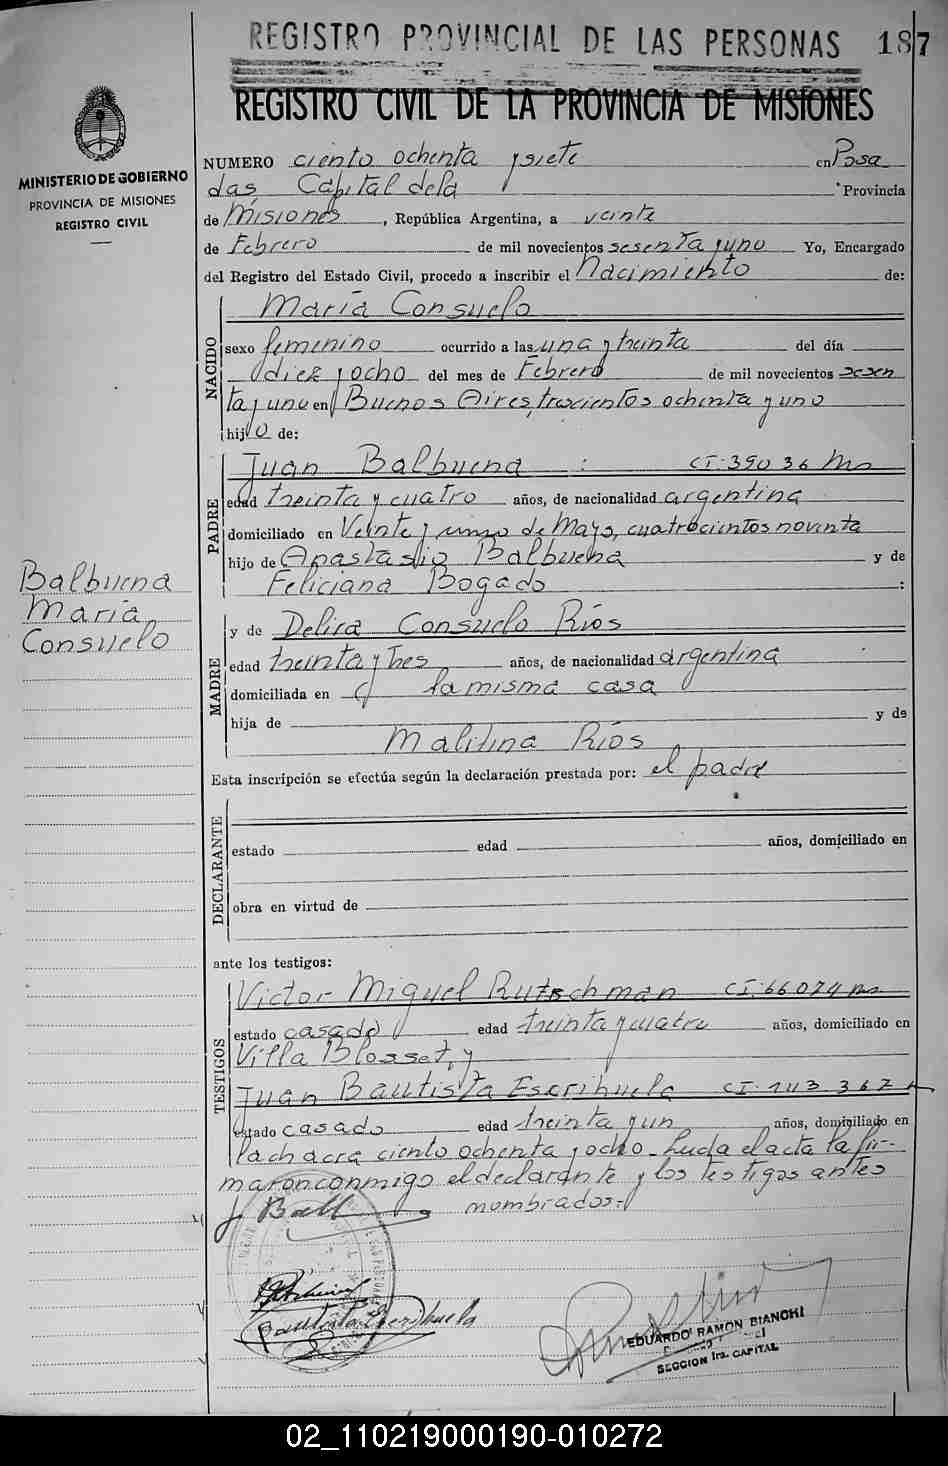 REGISTRO PROVINCIAL DE LAS PERSONAS 187
REGISTRO CIVIL DE LA PROVINCIA DE MISIONES
MINISTERIO DE GOBIERNO
PROVINCIA DE MISIONES
REGISTRO CIVIL
NUMERO ciento ochenta y siete en Posa
das Capital de la Provincia
de Misiones, República Argentina, a veinte
de Febrero de mil novecientos sesenta y uno Yo, Encargado
del Registro del Estado Civil, procedo a inscribir el Nacimiento de:
NACIDO
María Consuelo
sexo femenino ocurrido a las una y treinta del día
diez y ocho del mes de Febrero de mil novecientos sesen
ta y uno en Buenos Aires, trescientos ochenta y uno
hijo de:
PADRE
Juan Balbuena : CI. 39036 Mns
edad treinta y cuatro años, de nacionalidad argentina
domiciliado en Veinte y cinco de Mayo, cuatrocientos noventa
hijo de Anastasio Balbuena y de
Feliciana Bogado :
Balbuena
María
Consuelo
MADRE
y de Delira Consuelo Ríos
edad treinta y tres años, de nacionalidad argentina
domiciliada en la misma casa
hija de y de
Malitina Ríos
Esta inscripción se efectúa según la declaración prestada por: el padre
DECLARANTE
estado edad años, domiciliado en
obra en virtud de
ante los testigos:
TESTIGOS
Victor Miguel Rutschman CI. 66074 Mns
estado casado edad treinta y cuatro años, domiciliado en
Villa Blosset, y
Juan Bautista Escrihuela CI. 143.367
estado casado edad treinta y un años, domiciliado en
la chacra ciento ochenta y ocho. Leida el acta la fir-
maron conmigo el declarante y los testigos antes
nombrados.-
EDUARDO RAMON BIANCHI
SECCION 1ra. CAPITAL
02_110219000190-010272